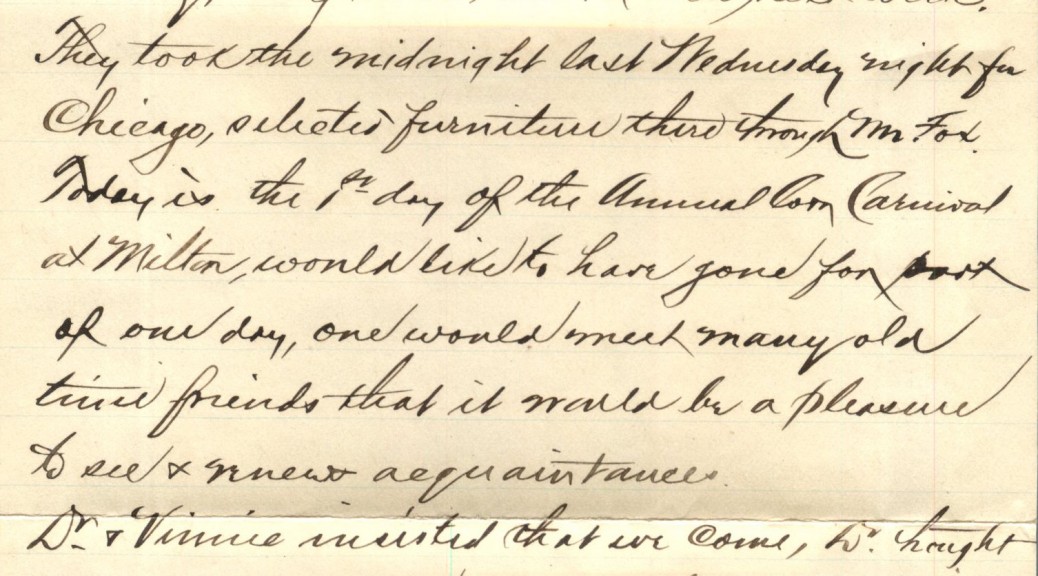 They took the midnight last Wednesday night for
Chicago, selected furniture there through Mr Fox.
Today is the 1st day of the Annual Corn Carnival
at Milton, would like to have gone for part
of one day, one would meet many old
time friends that it would be a pleasure
to see & renew acquaintances.
Dr. & Vinnie insisted that we come, Dr. bought